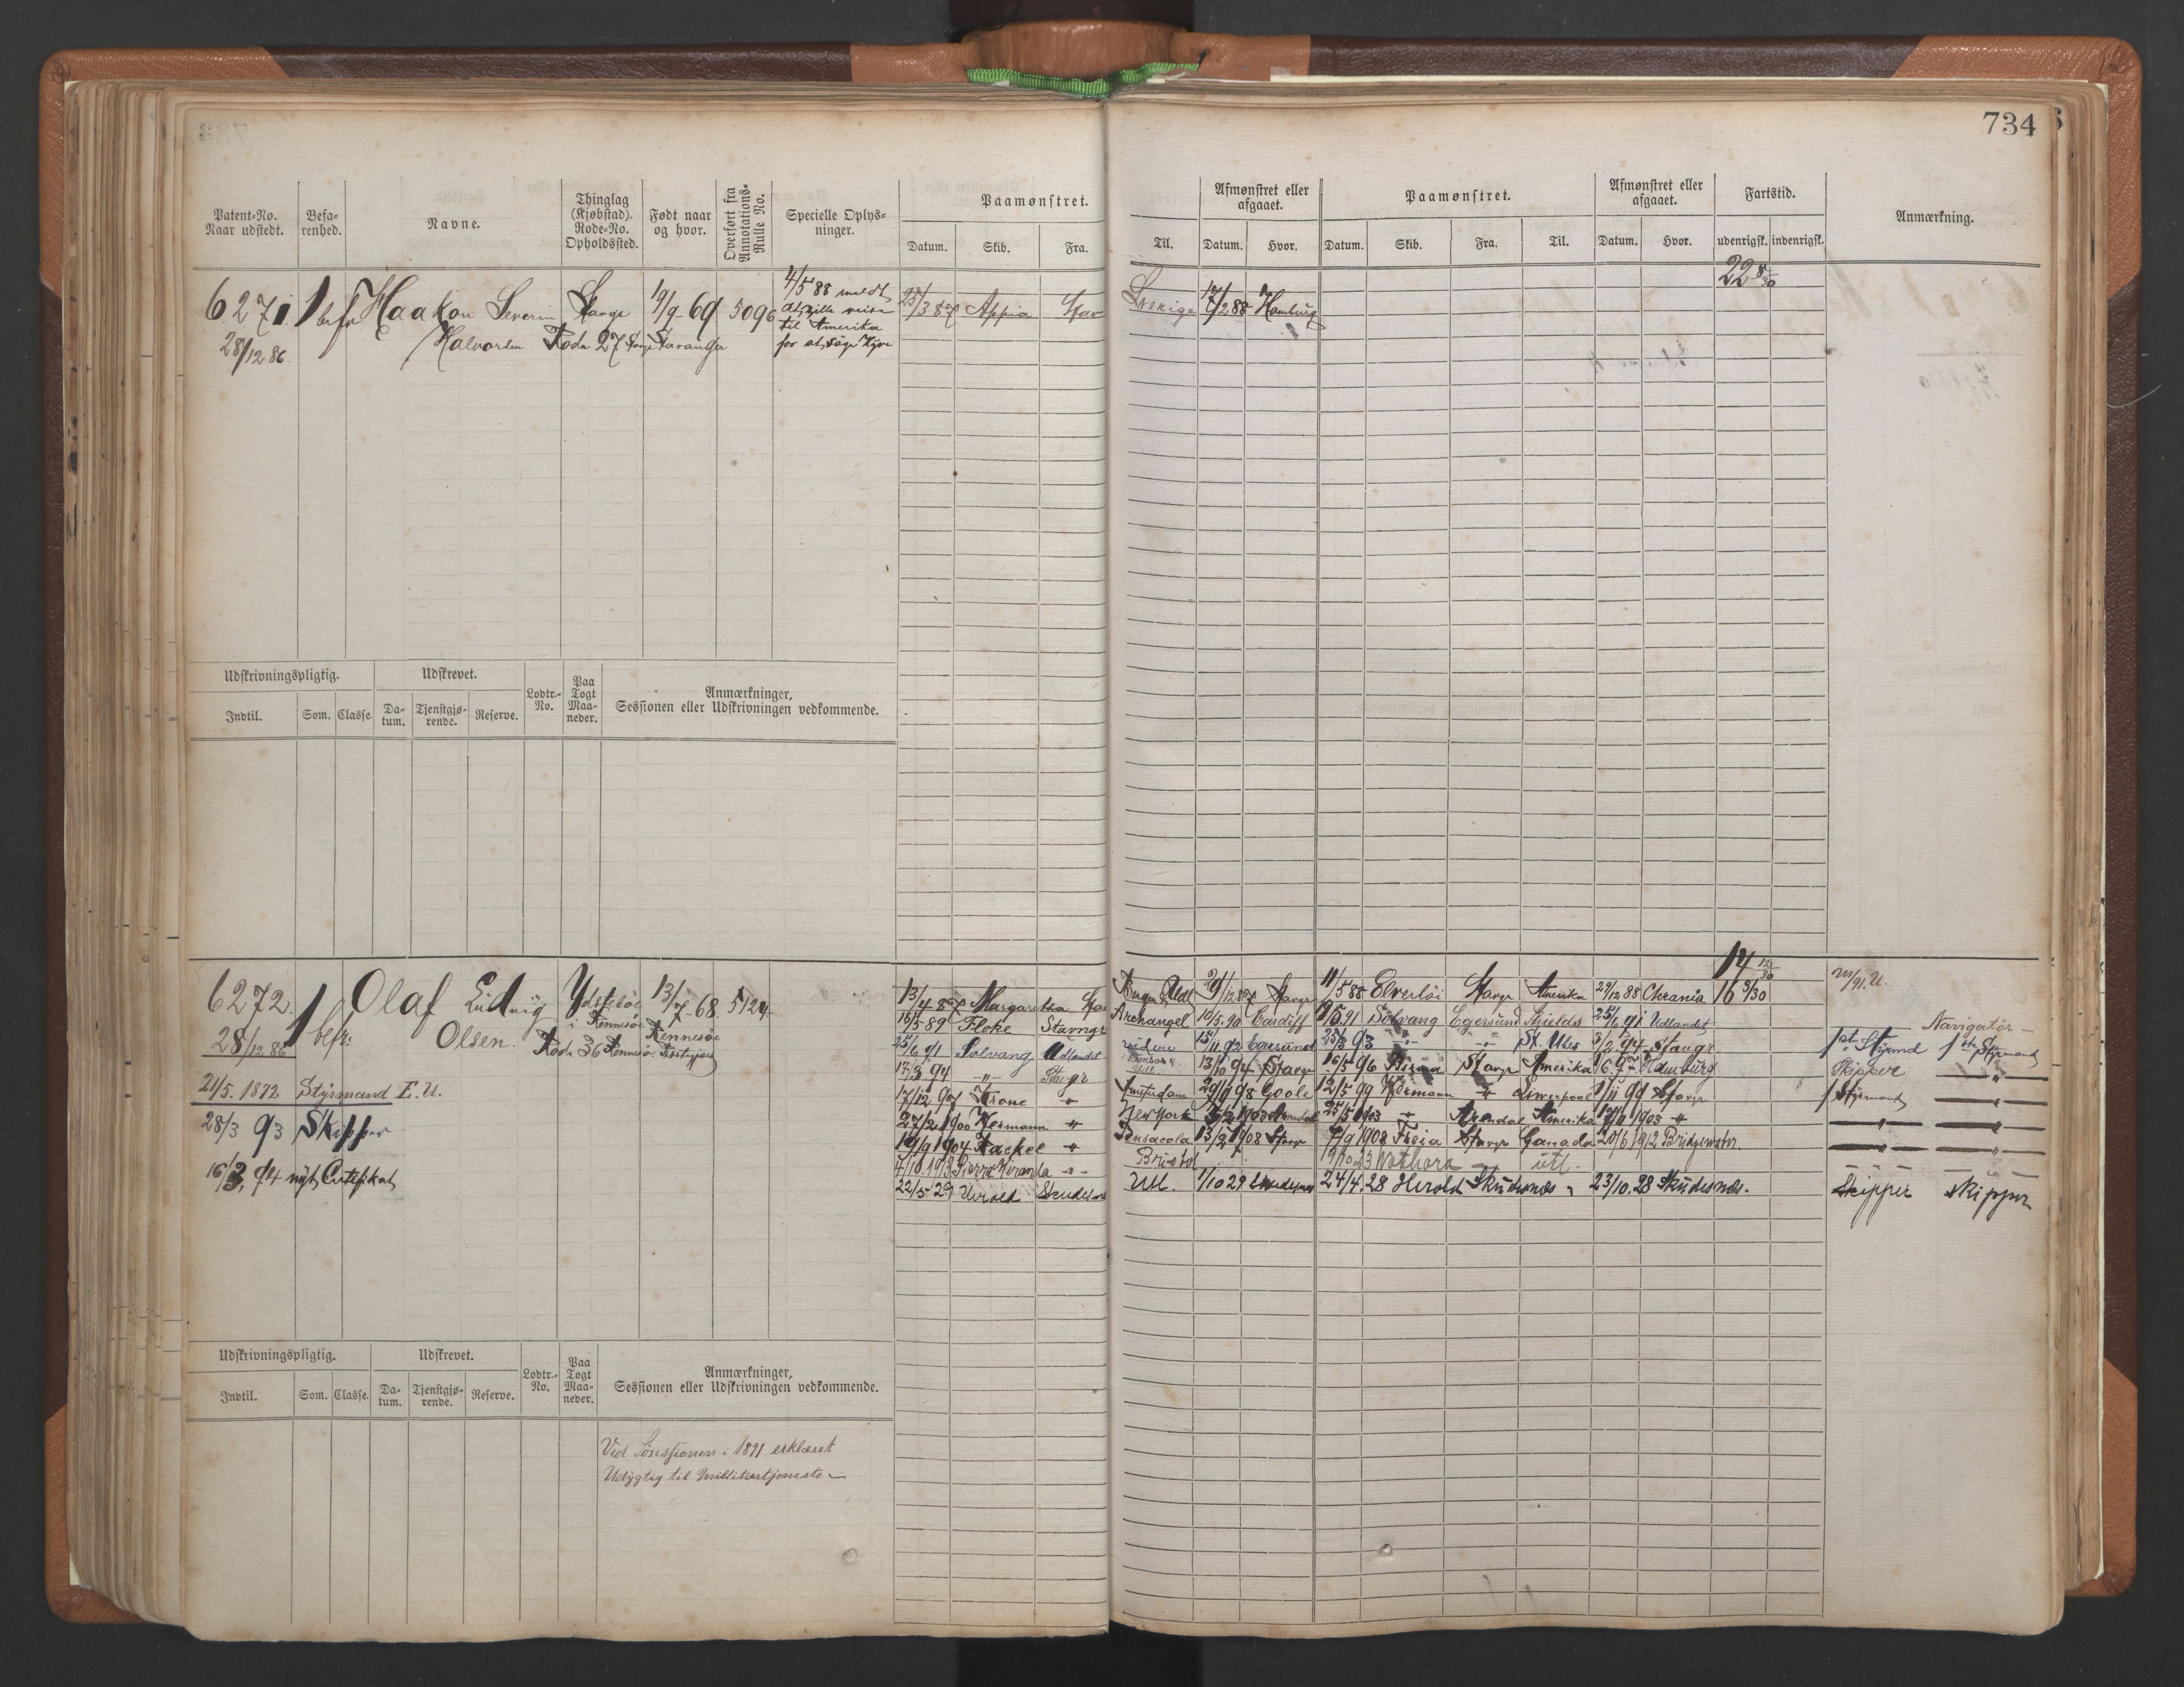 734
Patent-No. Naar udstedt.
Befarenhed.
Navne.
Thinglag (Kjøbstad). Rode-No. Opholdssted.
Født naar og hvor.
Overført fra Annotations-Rulle No.
Specielle Oplysninger.
Paamønstret.
Datum. Skib. Fra.
Til.
Afmønstret eller afgaaet.
Datum. Hvor.
Paamønstret.
Datum. Skib. Fra. Til.
Afmønstret eller afgaaet.
Datum. Hvor.
Fartstid.
udenrigsk. indenrigsk.
Anmærkning.
6271 1 bef Haakon Severin Stavgr 19/9 69 5096
28/12 86 Halvorsen Rode 27 Stavanger
4/5 88 meldt
at ville reise
til Amerika
for at søge Hyre
25/3 87 Appia Stav
Sverige 17/2 88 Hamburg
22 8/30
Udskrivningspligtig.
Indtil. Som. Classe.
Udskrevet.
Datum. Tjenstgjørende. Reserve.
Lodtr.-No.
Paa Togt Maaneder.
Anmærkninger, Sessionen eller Udskrivningen vedkommende.
6272 1 befr: Olaf Ludvig Ydstebøe 13/7 68 5124
i Rennesøe Rennesøe
28/12 86 Olsen. Rode 36
21/5. 1892 Styrmand E. U.
28/3 93 Skipper
16/3, 94 nyt Certifikat
13/4 87 Margaretha Sta
16/5 89 Floke Stavngr
25/6 91 Solvang Udlandet
17/3 94 -"- Stavgr
17/12 97 Krone "
27/2 1900 Hermann "
19/9 1904 Rackel "
4/10 1912 Miranda -"-
22/5 29 Herold Skudesn
29/12 87 Stavgr 11/5 88 Elverhöi Stavgr Amerika 29/12 88 Chrania 16 3/30
14 12/30
Archangel 10/5 90 Cardiff 9/5 91 Solvang Egersund Shields 25/6 91 Udlandet
videre 15/11 92 Egersund 25/3 93 -"- -"- St. Ubes 5/2 94 Stavgr
13/10 94 Stavgr 16/5 96 Birma Stavgr Amerika 16/6 97 Hamburg
Amsterdam 29/9 98 Goole 12/5 99 Hermann " Liwerpool 1/11 99 Stavgr
New York 3/2 1903 Arendal 25/5 1903 " Arendal Amerika 19/11 1903 "
Pensacola 13/2 1908 Stavgr 7/9 1908 Freia Stavgr Canada 20/6 1912 Bridgewater.
Bristol
Utl. 1/10 29 Skudesnes 24/4. 28 Herold Skudesnæs " 23/10. 28 Skudesnæs.
Navigatör
1st Styrmd 1ste Styrmand
Skipper "
1 Styrmand "
" "
" "
Skipper Skipper
Udskrivningspligtig.
Indtil. Som. Classe.
Udskrevet.
Datum. Tjenstgjørende. Reserve.
Lodtr.-No.
Paa Togt Maaneder.
Anmærkninger, Sessionen eller Udskrivningen vedkommende.
Ved Søsessionen i 1891 erklæret
Udygtig til Militærtjeneste